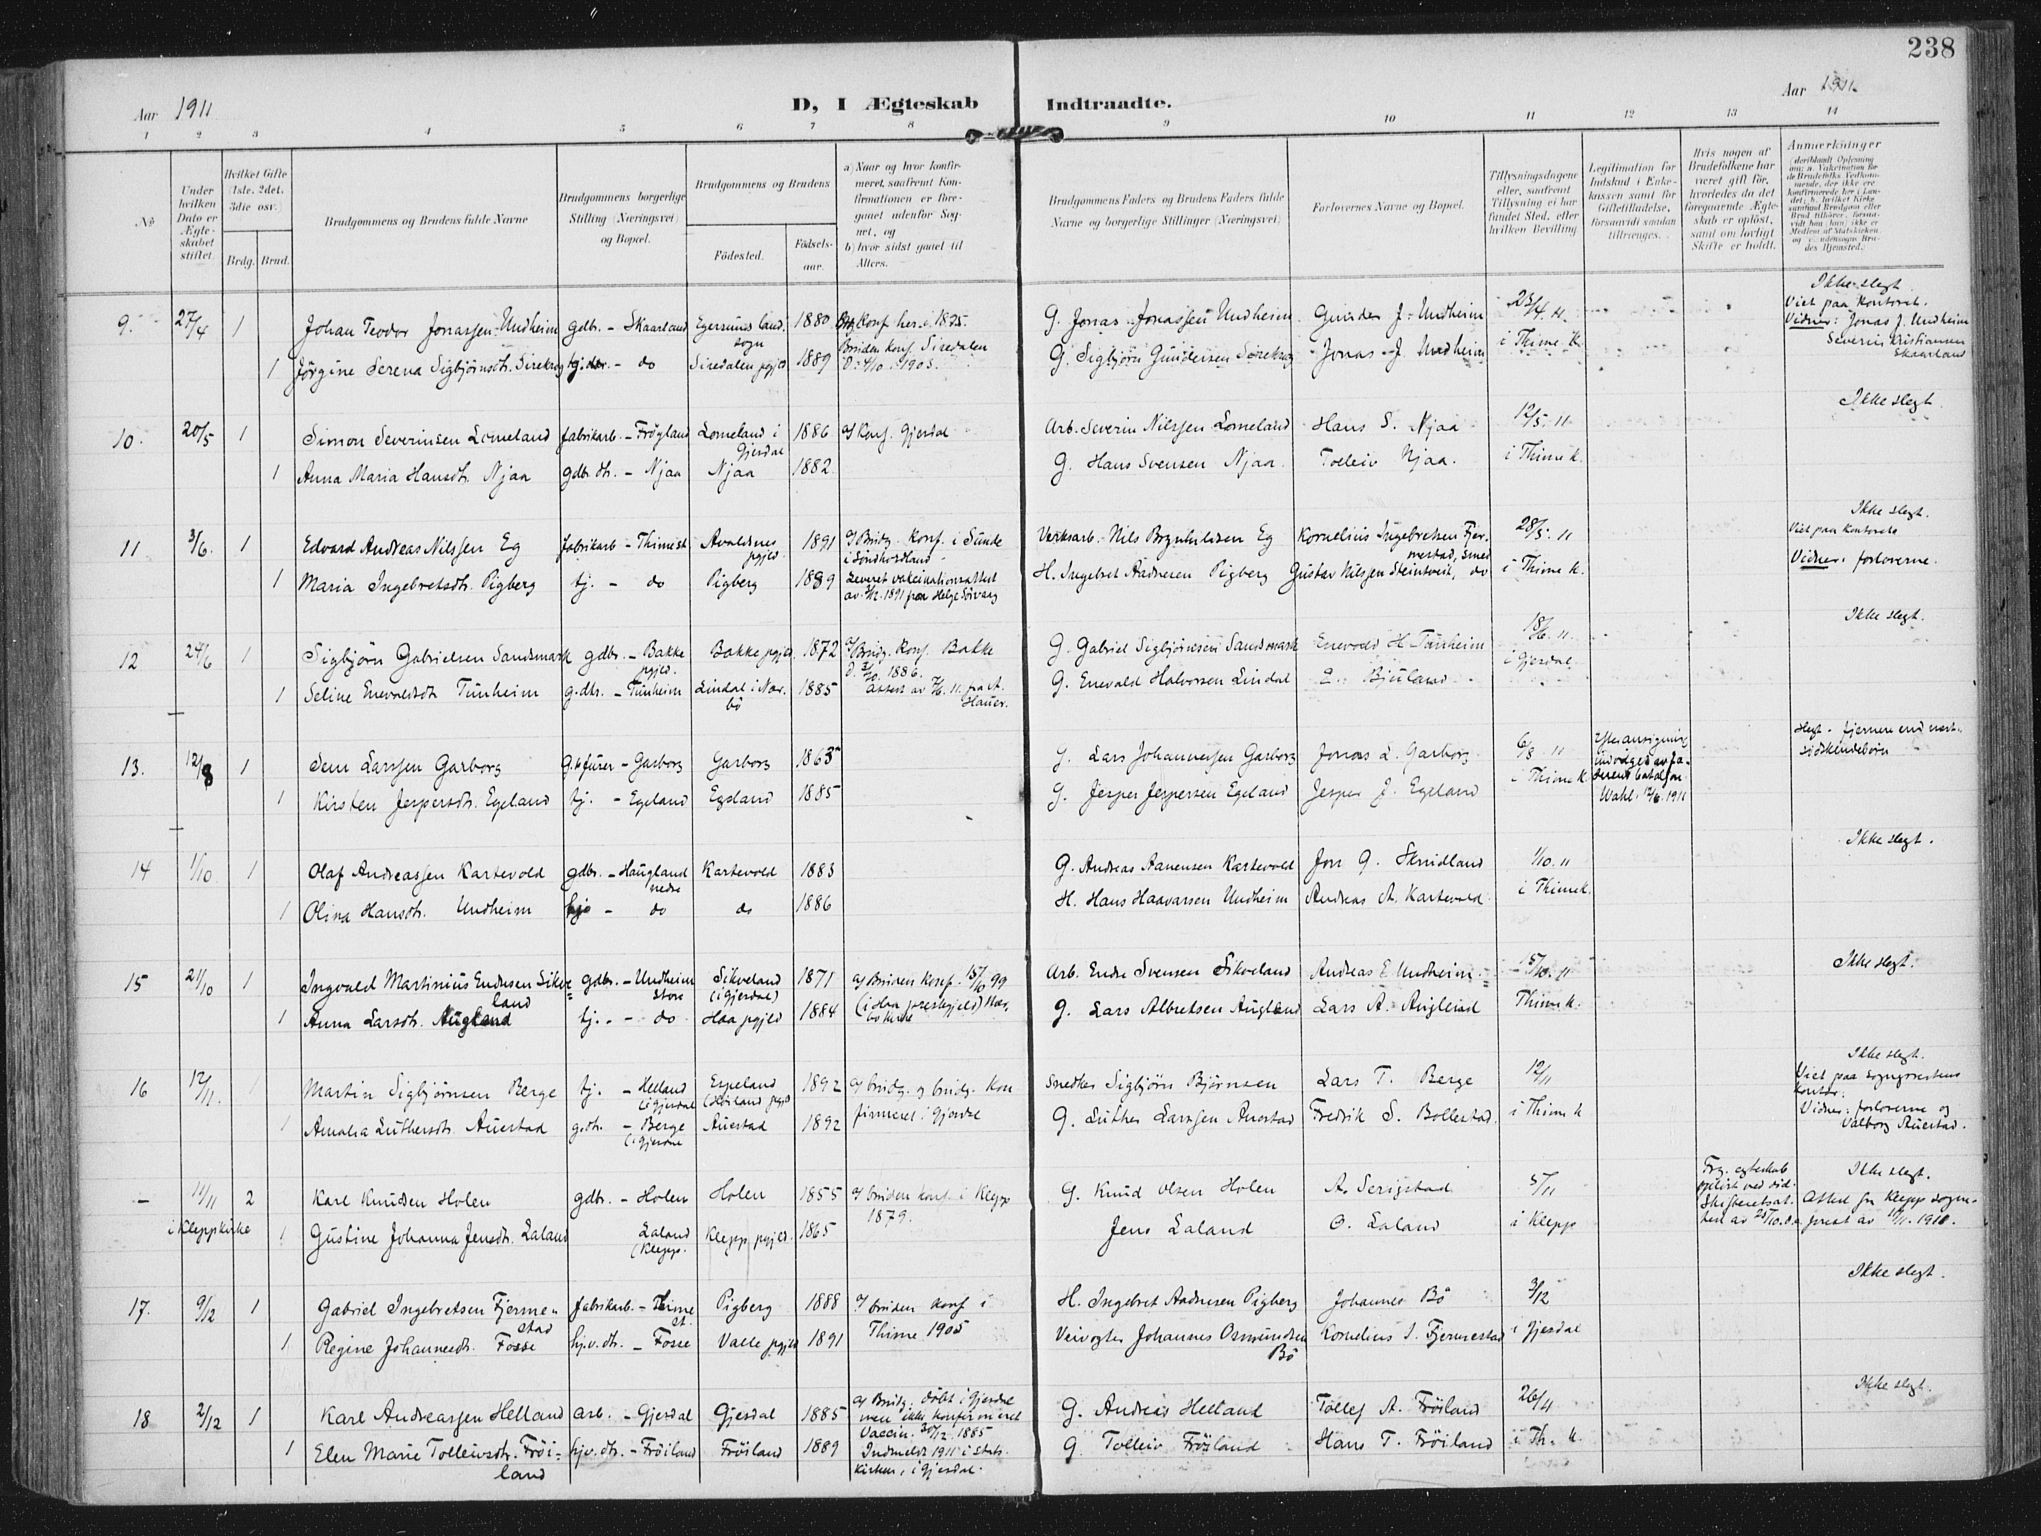 238
Aar 1911
D, I Ægteskab Indtraadte.
Aar 1911
1 2 3 4 5 6 7 8 9 10 11 12 13 14
No
Under hvilken Dato er Ægteskabet stiftet
Hvilket Gifte (1ste, 2det, 3die osv.)
Brdg. Brud.
Brudgommens og Brudens fulde Navne
Brudgommens borgerlige Stilling (Næringsvei) og Bopæl.
Brudgommens og Brudens
Fødested.
Fødselsaar.
a) Naar og hvor konfirmeret, saafremt Konfirmationen er foregaaet udenfor Sognet, og
b) hvor sidst gaaet til Alters.
Brudgommens Faders og Brudens Faders fulde Navne og borgerlige Stillinger (Næringsvei)
Forlovernes Navne og Bopæl.
Tillysningsdagene eller, saafremt Tillysning ei har fundet Sted, efter hvilken Bevilling
Legitimation for Indskud i Enkekassen samt for Giftetilladelse, forsaavidt saadan tiltrænges.
Hvis nogen af Brudefolkene har været gift før, hvorledes da det foregaaende Ægteskab er opløst, samt om lovligt Skifte er holdt.
Anmerkninger
9. 27/4 1 Johan Teodor Jonassen Undheim gdbr. - Skaarland Egersunds land. sogn 1880 Konf. her i 1895. G. Jonas Jonassen Undheim Gunder J. Undheim 23/4 11. Ikke slegt. Viet paa kontoret.
1 Jørgine Serena Sigbjørnsdt. Sirekrog - do Siredalen pgjld 1889 Bruden konf. Siredalen 1/10 1905. G. Sigbjørn Gundersen Sirekrog Jonas J. Undheim i Thime K. Vidner: Jonas J. Undheim Severin Kristiansen Skaarland
10. 20/5 1 Simon Severinsen Lomeland fabrikarb. - Frøyland Lomeland i Gjesdal 1886 a/ Konf. Gjesdal Arb. Severin Nilssen Lomeland Hans S. Njaa 12/5. 11 Ikke slegt.
1 Anna Maria Hansdt. Njaa gdbr. dt. - Njaa Njaa 1882 G. Hans Svensen Njaa. Tolleiv Njaa. i Thime k.
11 3/6. 1 Edvard Andreas Nilssen Eg fabrikarb - Thime st. Avaldsnes pgjld. 1891 a/ Brudg. konf. i Sunde i Søndhordland Verksarb. Nils Brynhildsen Eg Kornelius Ingebretsen Fjermestad, smed 28/5. 11 Ikke slegt. Viet paa kontoret
1 Maria Ingebretsdt. Pigberg tj. - do Pigberg 1889 Leveret vakcinationsattest av 1891 fra Helge Sørvaag H. Ingebret Aadnesen Pigberg Gustav Nilsen Steintveit, do i Thime k. Vidner: forloverne.
12 24/6 1 Sigbjørn Gabrielsen Sandsmark gdbr. - Bakke pgjld. Bakke pgjld. 1872 a/ Brudg. Konf. Bakke 1886. G. Gabriel Sigbjørnsen Sandsmark Enevold H. Tunheim 18/6. 11. Ikke slegt.
1 Seline Enevoldsdt Tunheim g.dtr. - Tunheim Lindal i Nærbø 1885 attest av 7/6. 11 fra A. Hauer. G. Enevald Halvorsen Lindal E. Bjuland i Gjesdal.
13. 12/8 1 Sem Larssen Garborg - Garborg Garborg 1863 G. Lars Johannessen Garborg Jonas L. Garborg. 6/8 11 slegt - fjernere end næst-sødskendebörn
1 Kirsten Jespersdt. Egeland tj. - Egeland Egeland 1885 G. Jesper Jespersen Egeland Jesper J. Egeland i Thime k. Wahl. 1911
14 1/10 1 Olaf Andreassen Kartevold gdbr. - Haugland nedre Kartevold 1883 G. Andreas Aanensen Kartevold Jon G. Skridland 1/10. 11 Ikke slegt.
1 Olina Hansdt. Undheim - do do 1886 H. Hans Haavarsen Undheim Andreas A. Kartevold. i Thime k.
15 21/10 1 Ingvald Martinius Endresen Sikveland gdbr. - Undheim store Sikveland (i Gjesdal) 1871 a/ Bruden konf. 15/10 99 Arb. Endre Svensen Sikveland Andreas E. Undheim 15/10. 11 Ikke slegt.
1 Anna Larsdt. Augland tj. - do Haa pgjld 1884 (i Haa prestegjeld) Nærbø kirke G. Lars Albretsen Augland Lars A. Auglend Thime k.
16 12/11. Martin Sigbjørnsen Berge tj. - Helland (i Gjesdal Espeland (Høiland pgjld 1892 a/ brudg. og brudg. konfirmeret i Gjesdal Snedker Sigbjørn Bjørnsen Lars T. Berge 12/11 Ikke slegt. Viet paa sogneprestens kontor.
1 Amalia Luthersdt. Auestad g.dt. - Berge (i Gjesdal Auestad 1892 G. Luther Larssen Auestad Fredrik S. Bollestad. i Thime k Vidner: forloverne og Valborg Auestad.
- 11/11 2 Karl Knudsen Holen gdbr. - Holen Holen 1855 a/ bruden konf. i Klepp 1879. G. Knud Olsen Holen A. Serigstad 5/11 Ikke slegt.
i Klepp kirke 1 Gustine Johanna Jensdt. Laland Laland (Klepp. Klepp pgjld. 1865 Jens Laland O. Laland i Klepp Attest fra Klepp sogneprest av 11/11. 1910.
17. 9/12 1 Gabriel Ingebretsen Fjermestad fabrikarb. - Thime st. Pigberg 1888 a/ bruden konf i Thime 1905 H. Ingebret Aadnesen Pigberg Johannes Bö 3/12 Ikke slegt.
1 Regine Johannesdt. Fosse hj.v. dt. - Fosse Valle pgjld 1891 Veivogter Johannes Osmundsen Bö Kornelius I. Fjermestad i Gjesdal
18 2/12 1 Karl Andreassen Helland arb. - Gjesdal Gjesdal 1885 a/ Brudg. døbt i Gjesdal men ikke konfirmeret Vaccin. 20/12. 1885 G. Andreas Helland Tollef A. Frøiland 26/11 Ikke slegt.
1 Elen Marie Tolleivsdt. Frøiland hj.v. dt. - Frøiland Frøiland 1889 Indmeldt 1911 i statskirken, i Gjesdal. G. Tolleiv Frøiland Hans T. Frøiland i Th. k.